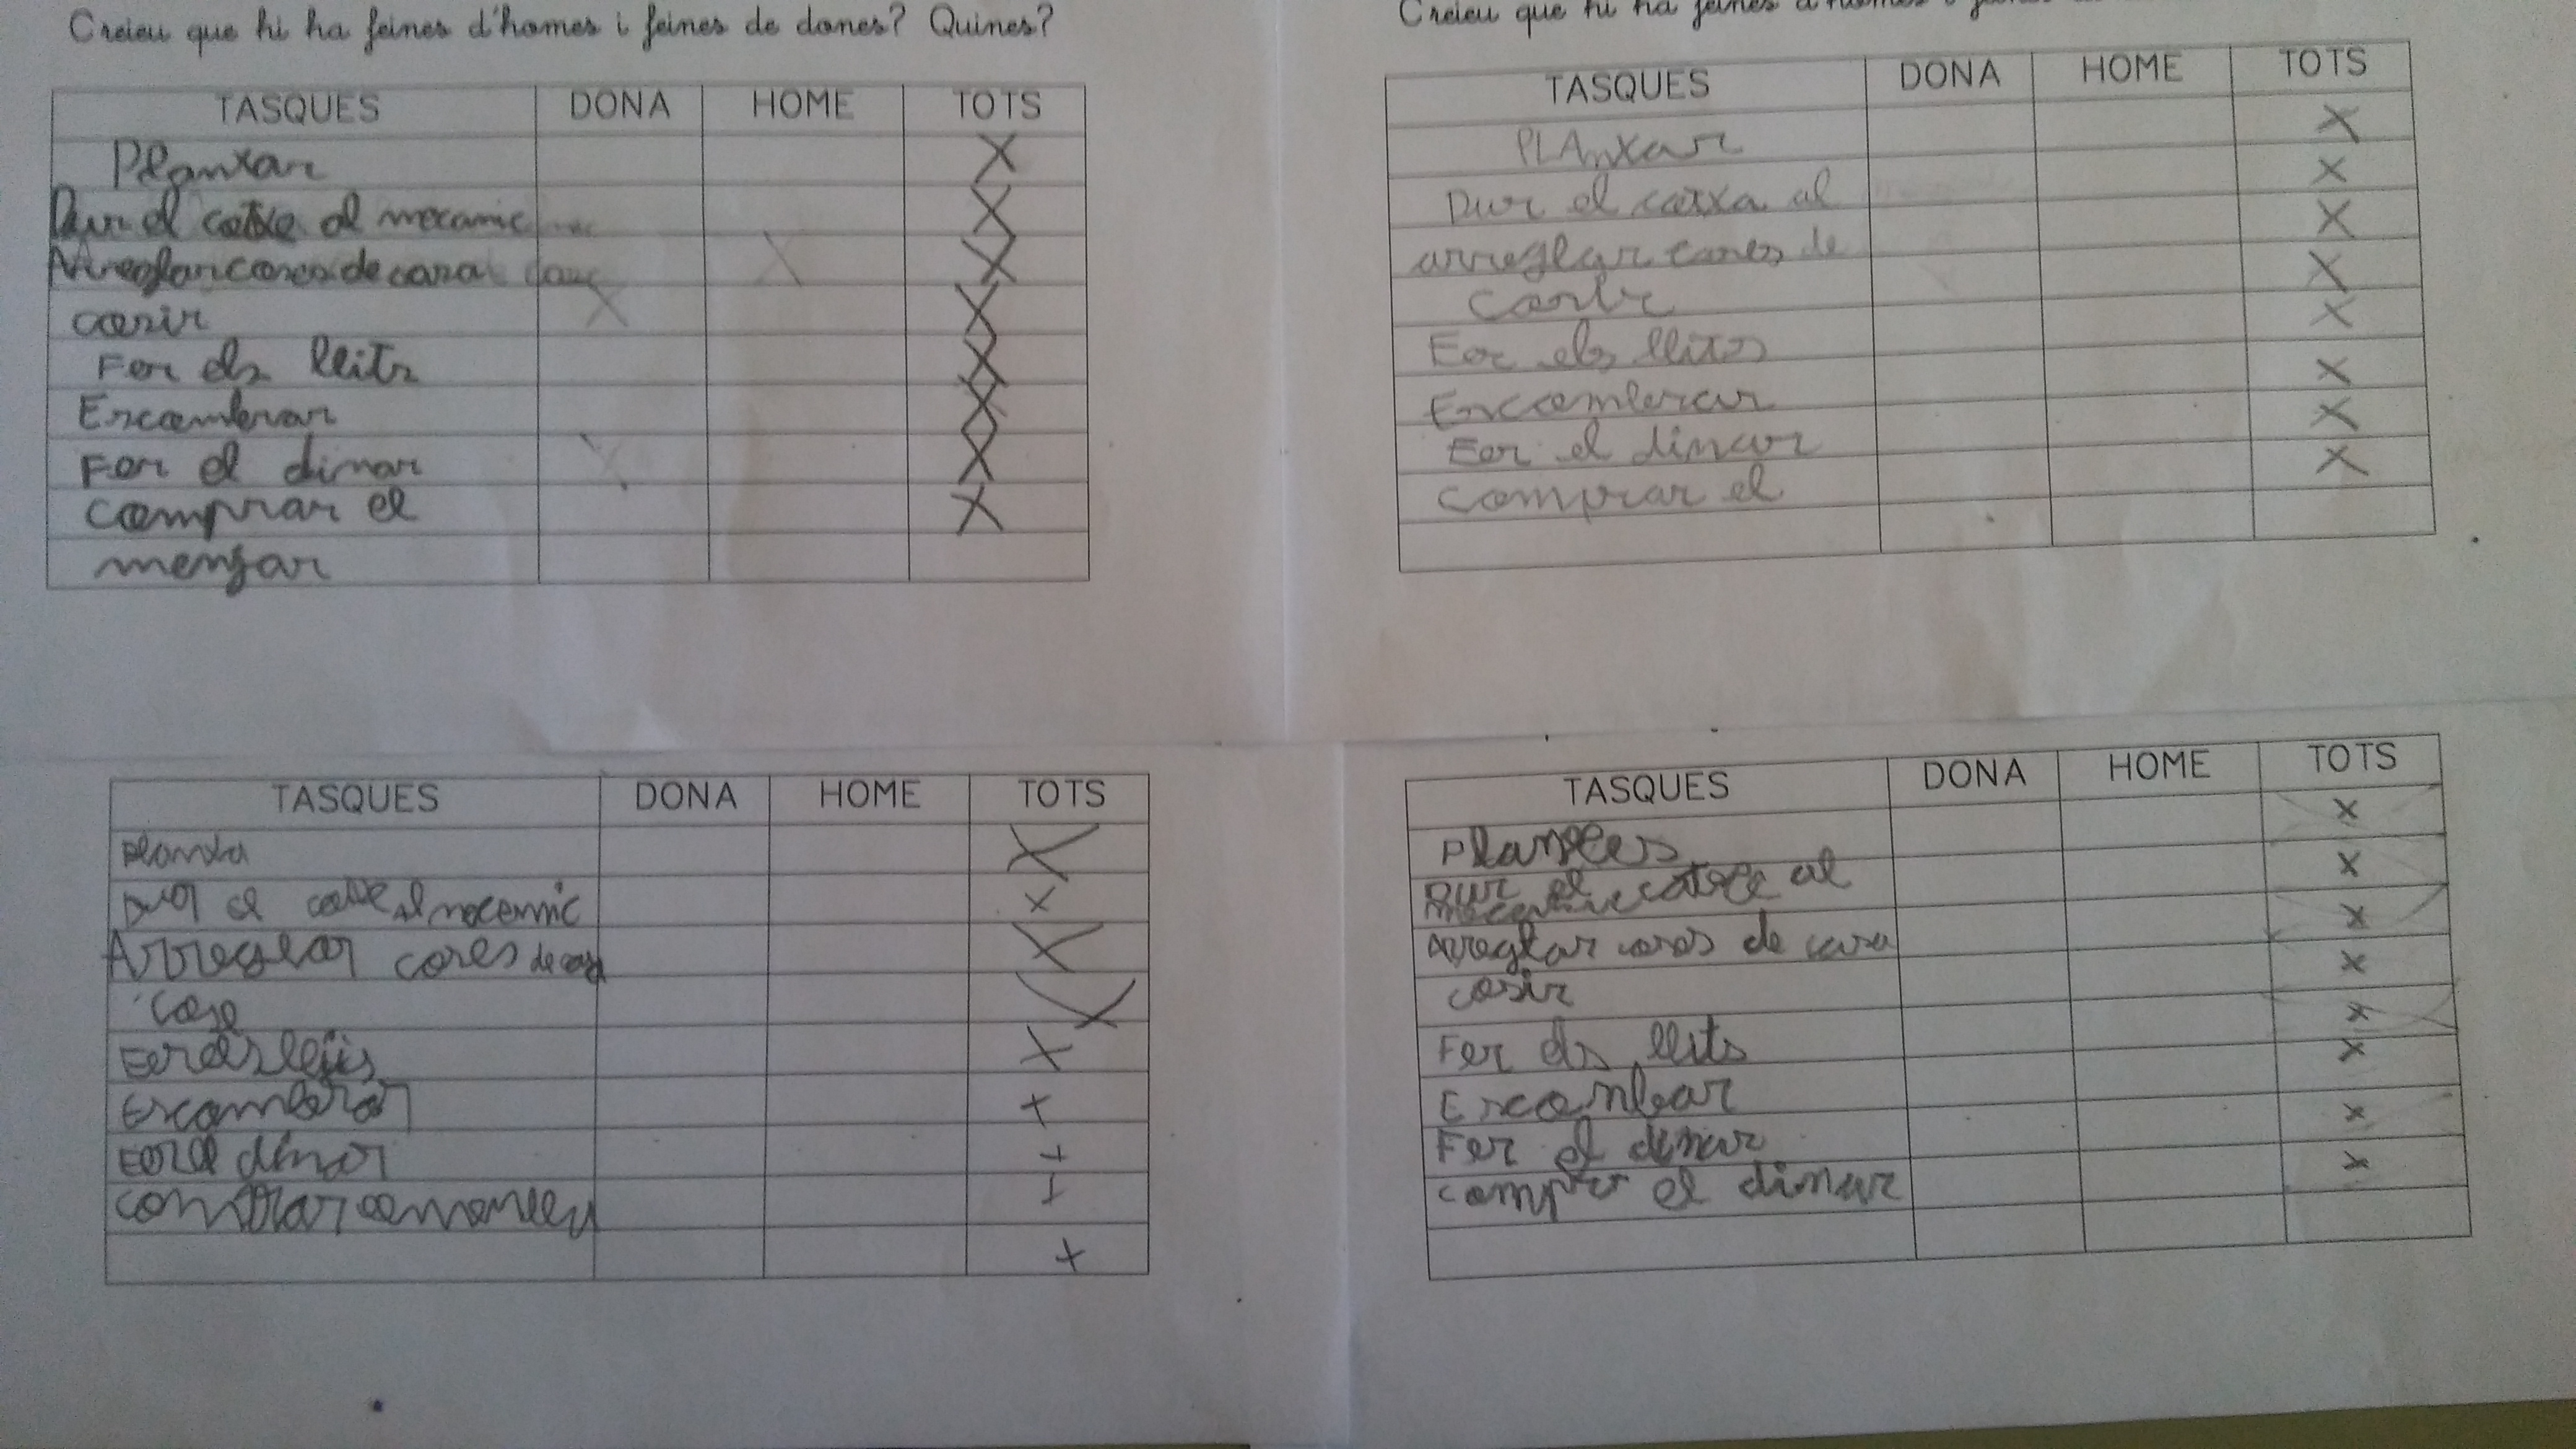 Creieu que hi ha feines d'homes i feines de dones? Quines?
TASQUES DONA HOME TOTS
Planxar X
Dur el cotxe al mecanic X
Arreglar coses de casa X
cosir X
Fer els llits X
Escombrar X
Fer el dinar X
comprar el X
menjar
Creieu que hi ha feines d'homes i
TASQUES DONA HOME TOTS
PLAnxar X
Dur el cotxa al X
arreglar coses de X
Cosir X
Fer els llits X
Escombrar X
Fer el dinar X
comprar el X
TASQUES DONA HOME TOTS
planxa X
Dur el cotxe al mecanic X
Arreglar coses de casa X
X
X
Escombrar X
dinar X
X
X
TASQUES DONA HOME TOTS
X
Dur el al X
Arreglar coses de casa X
cosir X
Fer els llits X
Escombar X
Fer el dinar X
compra el dinar X